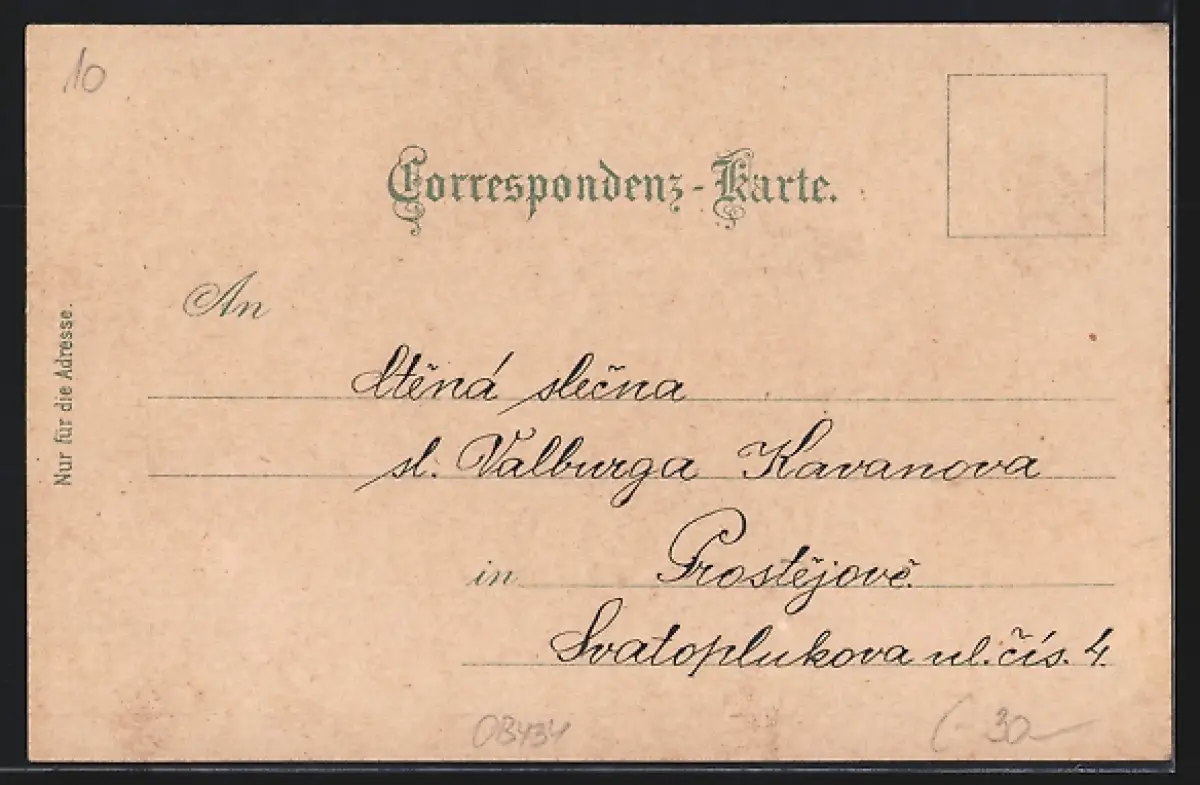 10
Correspondenz-Karte.
An
Nur für die Adresse.
Ctěná slečna
sl. Valburga Kavanova
in Prostějově.
Svatoplukova ul. čís. 4.
OB434
(-30-